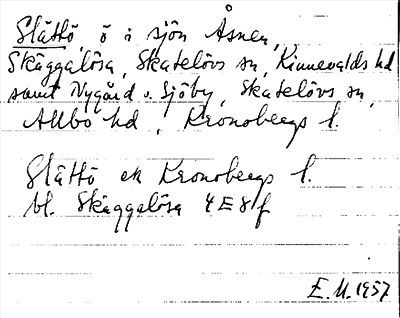 Slättö, ö i sjön Åsnen,
Skäggalösa, Skatelövs sn, Kinnevalds hd
samt Nygård o. Sjöby, Skatelövs sn,
Allbo hd, Kronobergs l.
Slättö ek Kronobergs l.
bl. Skäggalösa 4E8f
E.U. 1957